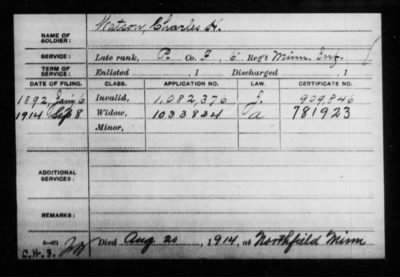 NAME OF SOLDIER: Watson, Charles H.
SERVICE: Late rank, P. Co. I, 6 Reg't Minn Inf.
TERM OF SERVICE: Enlisted , 1 Discharged , 1
DATE OF FILING. CLASS. APPLICATION NO. LAW CERTIFICATE NO.
1892, Jany 6 Invalid, 1,082,376 909,846
1914 Sep 8 Widow, 1033834 a 781923
Minor,
ADDITIONAL SERVICES:
REMARKS:
Died Aug 20, 1914, at Northfield Minn